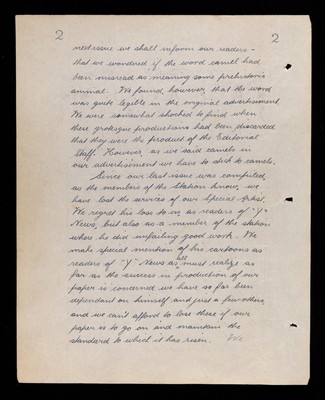 2 2
next issue we shall inform our readers -
that we wondered if the word camel had
been misread as meaning some prehistoric
animal. We found, however, that the word
was quite legible in the original advertisement.
We were somewhat shocked to find when
these grotesque productions had been discarded
that they were the product of the Editorial
Staff. However as we said camels in
our advertisement we have to stick to camels.
Since our last issue was compiled,
as the members of the Station know, we
have lost the services of our Special Artist.
We regret his loss to us as readers of "Y"
News, but also as a member of the station
where he did unfailing good work. We
make special mention of his cartoons as
readers of "Y" News as all must realize as
far as the success in production of our
paper is concerned we have so far been
dependant on himself and just a few others,
and we can't afford to lose these if our
paper is to go on and maintain the
standard to which it has risen. We